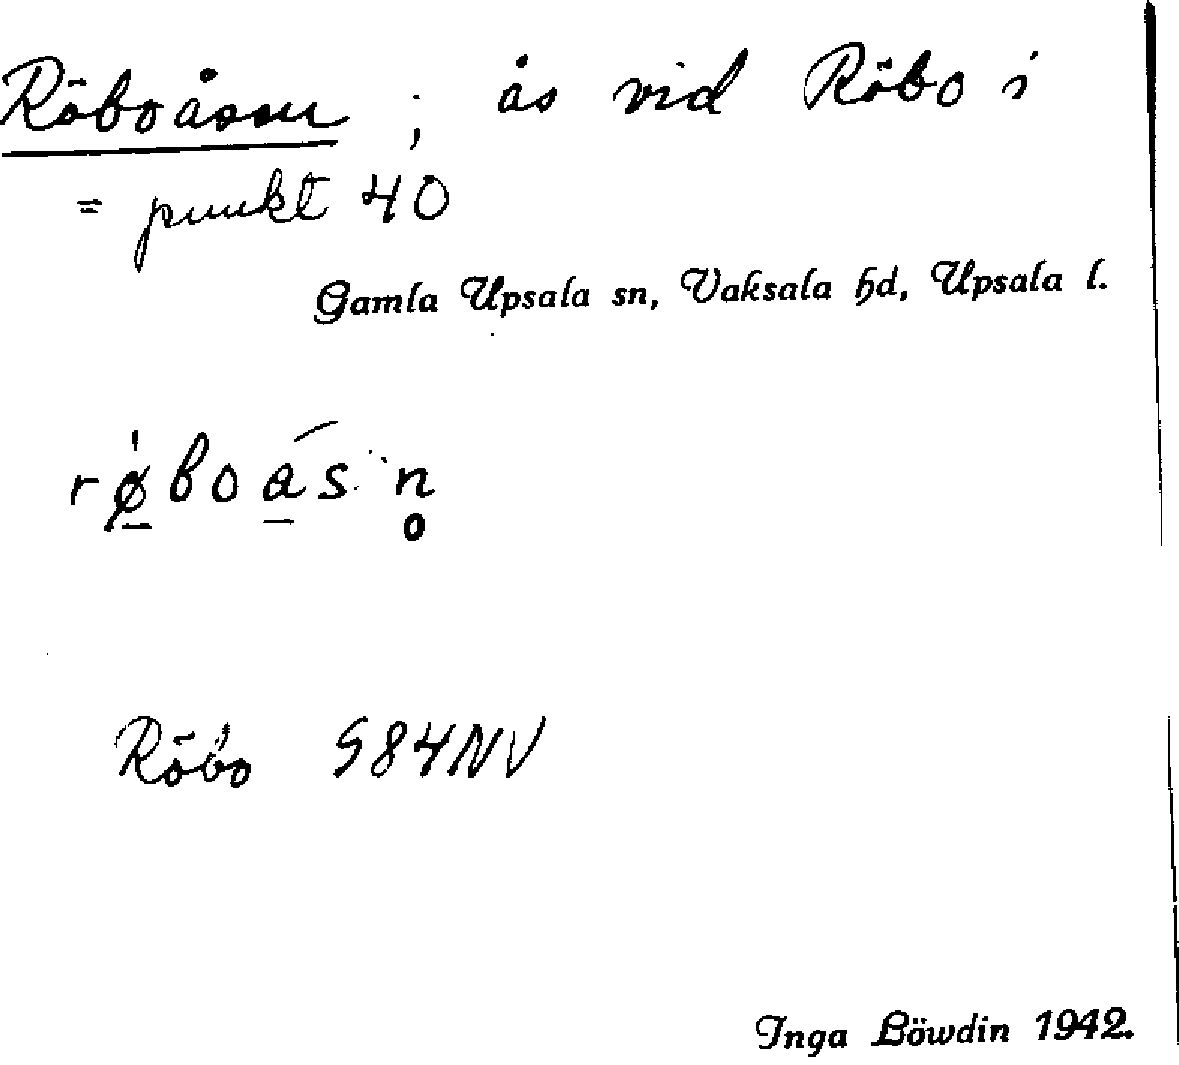 Röboåsen ; ås vid Röbo i
= punkt 40
Gamla Upsala sn, Vaksala hd, Upsala l.
rǿ̠boá̠s n̥
Röbo S84NV
Inga Löwdin 1942.